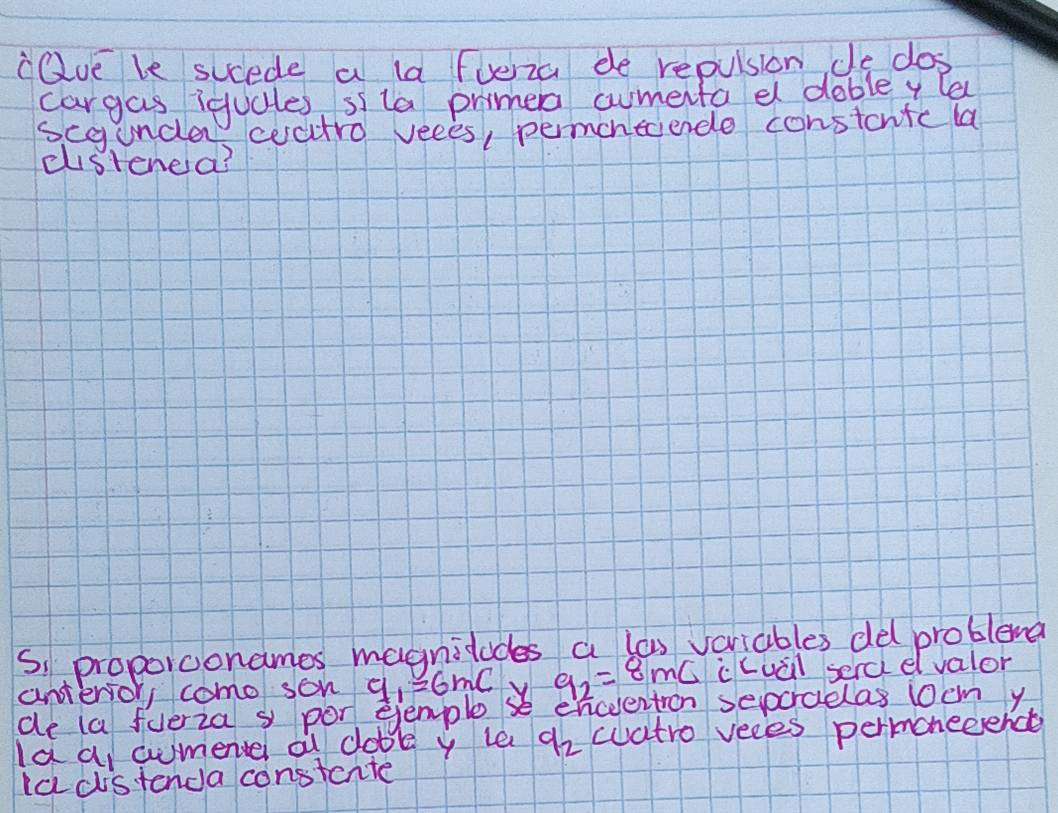 ¿Qué le sucede a la fuerza de repulsion de dos
cargas iguales si la primera aumenta el doble y la
segunda cuatro veces, permaneciendo constante la
distancia?
Si proporcionamos magnitudes a las variables del problema
anterior, como son q1=6mC y q2=8mC ¿Cuál será el valor
de la fuerza si por ejemplo se encuentran separadas 10cm y
la q1 aumenta al doble y la q2 cuatro veces permaneciendo
la distancia constante